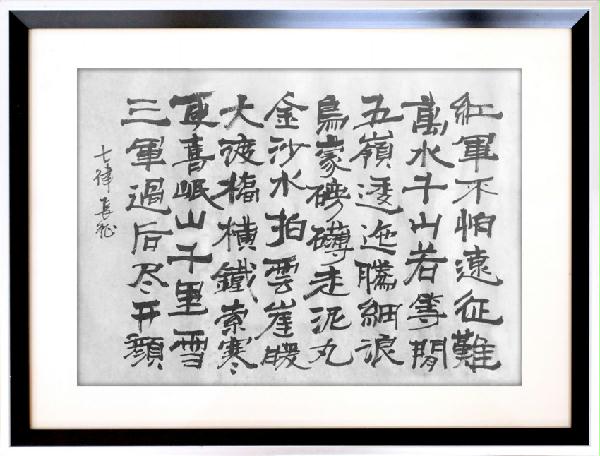 紅軍不怕遠征難
萬水千山若等閒
五嶺逶迤騰細浪
烏蒙磅礴走泥丸
金沙水拍雲崖暖
大渡橋橫鐵索寒
更喜岷山千里雪
三軍過后尽开顏
七律長征